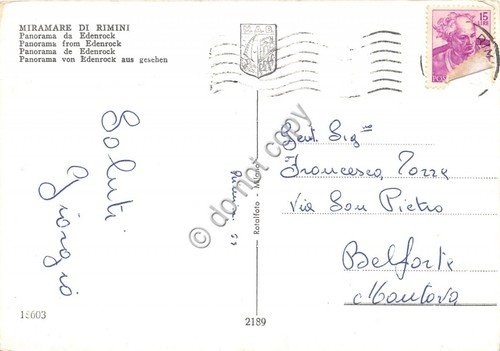 MIRAMARE DI RIMINI
Panorama da Edenrock
Panorama from Edenrock
Panorama de Edenrock
Panorama von Edenrock aus gesehen
15
LIRE
Saluti
Giorgio
Rotalfoto - Milano
do not copy
Gent. Sig.na
Francesca Torre
Via San Pietro
Belforte
Mantova
18603
2189